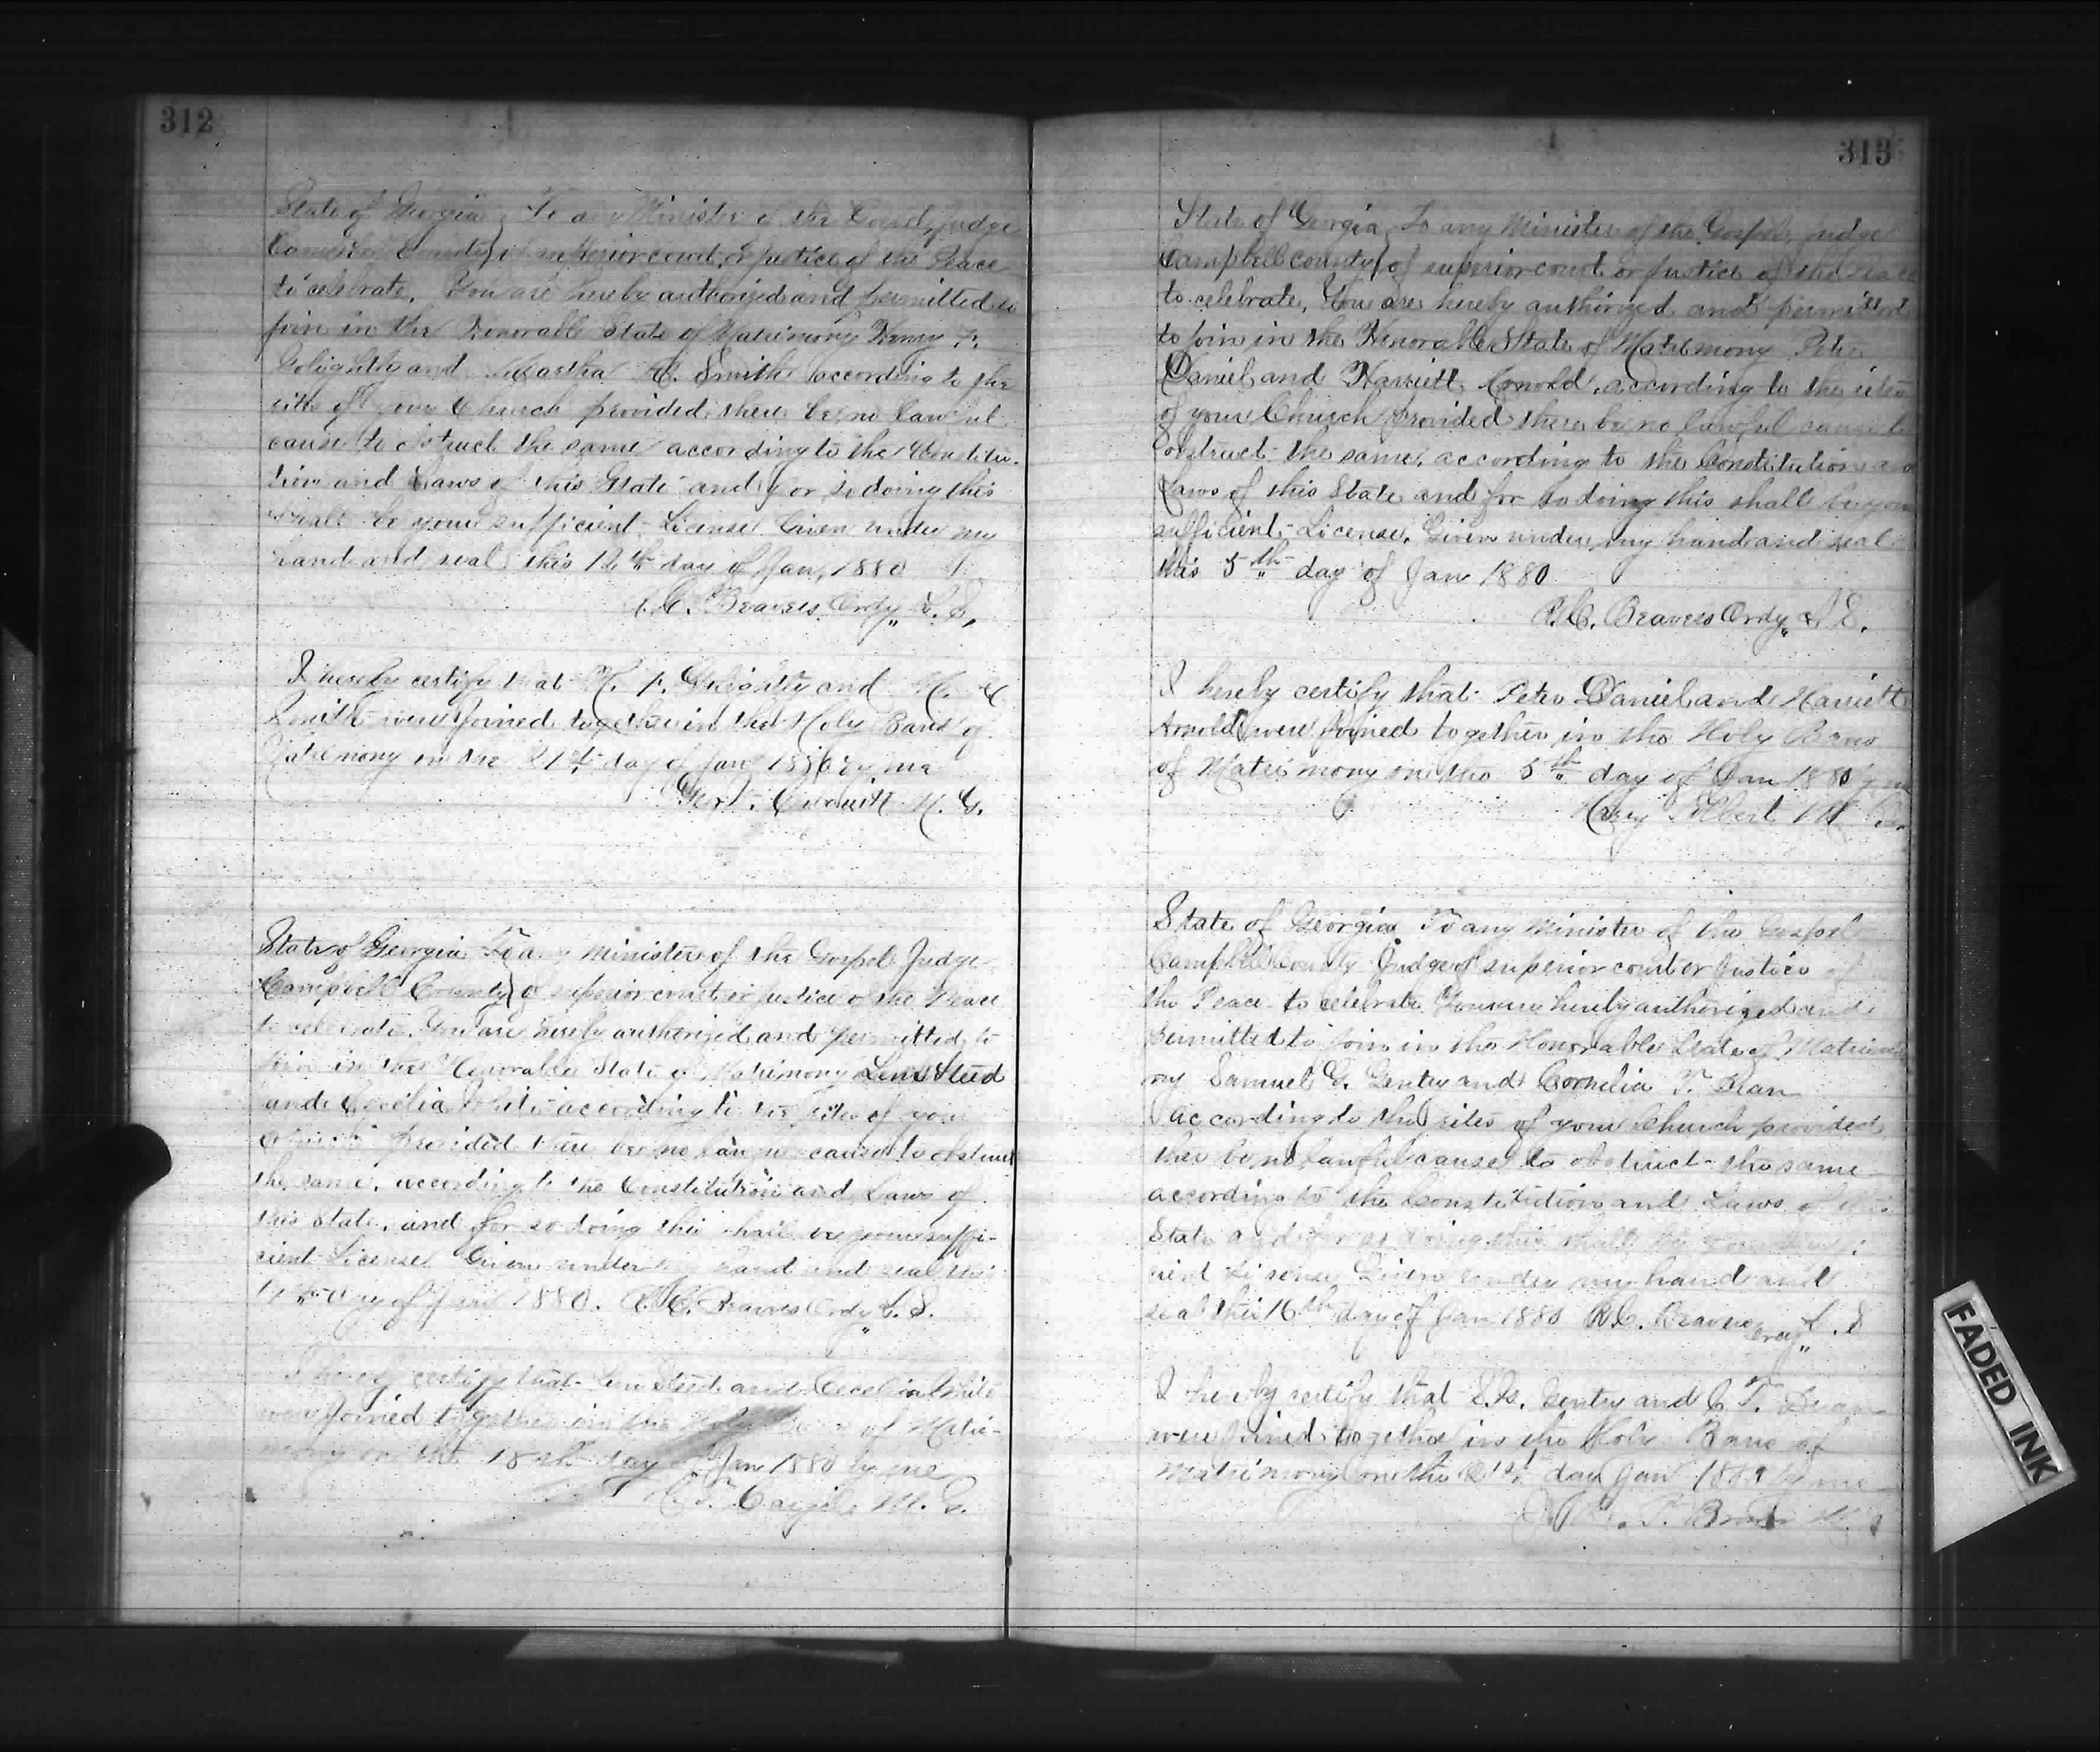 312
State of Georgia } To any Minister of the Gospel, Judge
Campbell County } of superior court, or Justice of the Peace
to celebrate, You are hereby authorized and permitted to
join in the Honorable State of Matrimony Henry F.
Golightly and Martha A. Smith according to the
rites of your Church provided there be no lawful
cause to obstruct the same according to the Constitu-
tion and Laws of this State and for so doing this
shall be your sufficient License Given under my
hand and seal this 12th day of Jan, 1880
R. C. Beavers Ordy L. S,
I hereby certify that H. F. Golightly and M. A.
Smith were joined together in the Holy Bans of
Matrimony on the 21st day of Jan 1880 by me
M. G.
State of Georgia To any Minister of the Gospel Judge
Campbell County } of superior court or Justice of the Peace
to celebrate. You are hereby authorized and permitted to
join in the Honorable State of Matrimony Lem Steed
and Cecelia White according to the rites of your
Church provided there be no lawful cause to obstruct
the same, according to the Constitution and Laws of
this State, and for so doing this shall be your suffi-
cient License Given under my hand and seal this
day of Jan 1880. R. C. Beavers Ordy L. S.
I hereby certify that Lem Steed and Cecelia White
were joined together in the Holy of Matri-
mony on the 18th day of Jan 1880 by me
M. G.
313
State of Georgia } To any Minister of the Gospel, Judge
Campbell county } of superior court or Justice of the Peace
to celebrate, You are hereby authorized and permitted
to join in the Honorable State of Matrimony Peter
Daniel and Harriett Arnold, according to the rites
of your Church provided there be no lawful cause to
obstruct the same, according to the Constitution and
Laws of this State and for so doing this shall be your
sufficient License. Given under my hand and seal
this 5th day of Jan 1880
R. C. Beavers Ordy L S.
I hereby certify that Peter Daniel and Harriett
Arnold were joined together in the Holy Bans
of Matrimony on the 5th day of Jan 1880 by me
State of Georgia To any Minister of the Gospel
Campbell County Judge of superior court or Justice of
the Peace to celebrate You are hereby authorized and
permitted to join in the Honorable State of Matrimo-
ny Samuel G. Gentry and Cornelia T.
according to the rites of your Church provided
there be no lawful cause to obstruct the same
according to the Constitution and Laws of this
State and for so doing this shall be your suffi-
cient License Given under my hand and
seal this 16th day of Jan 1880 R. C. Beavers Ordy L. S
I hereby certify that S. G. Gentry and C T.
were joined together in the Holy Bans of
Matrimony on the 21st day Jan by me
FADED INK